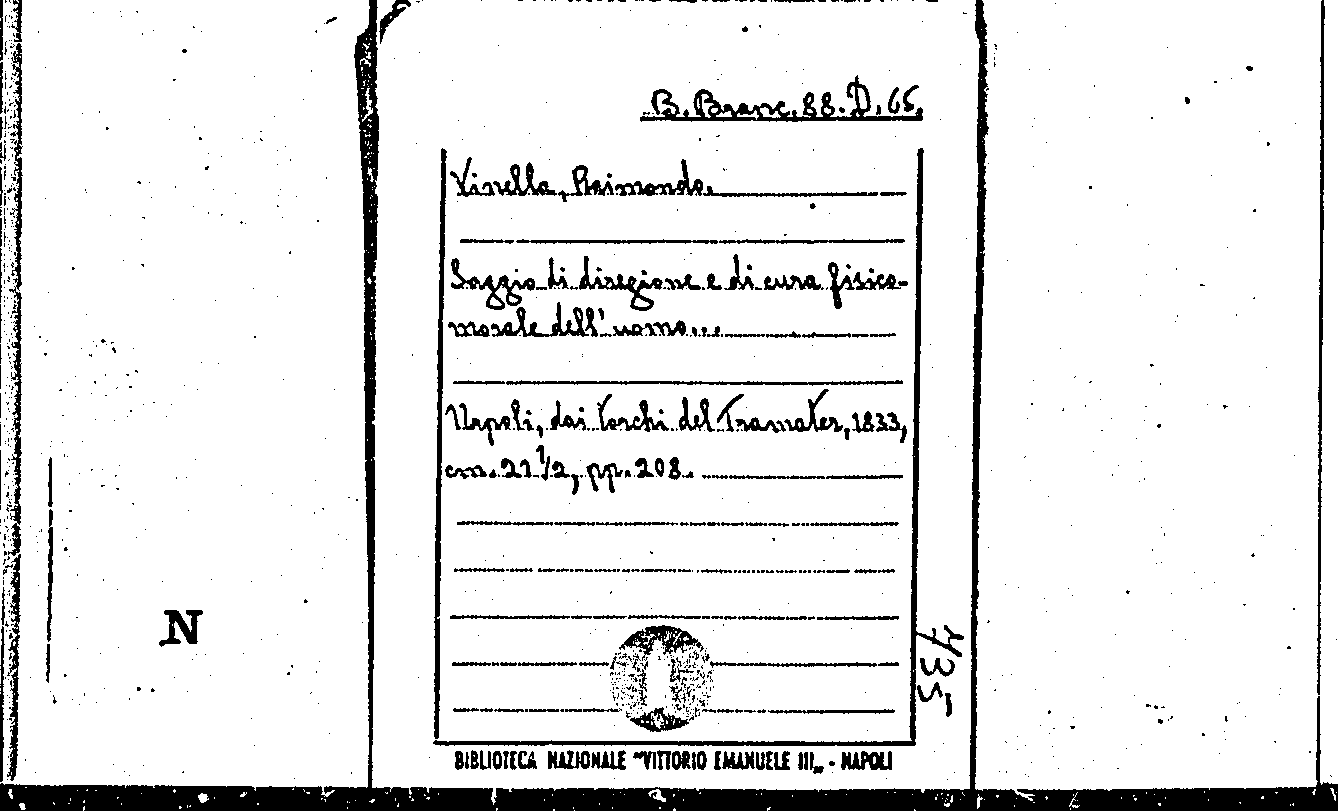 B. Branc. 88. D. 65.
Vinella, Raimondo.
Saggio di diregione e di cura fisico-
morale dell'uomo...
Napoli, dai torchi del Tramater, 1833,
cm. 21 1/2, pp. 208.
N
435
BIBLIOTECA NAZIONALE "VITTORIO EMANUELE III„ - NAPOLI